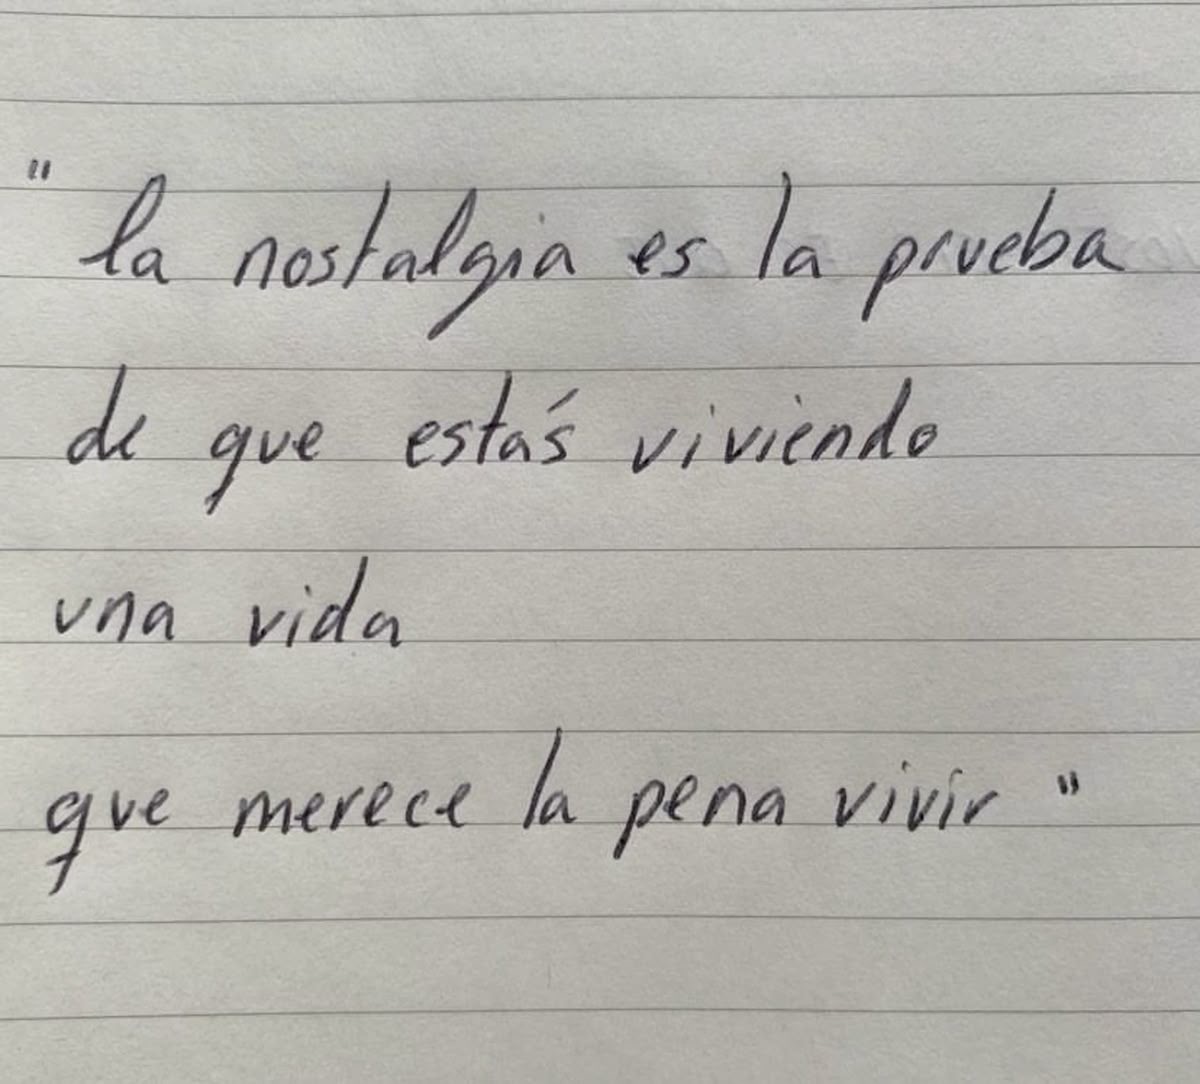 "la nostalgia es la prueba
de que estás viviendo
una vida
que merece la pena vivir"